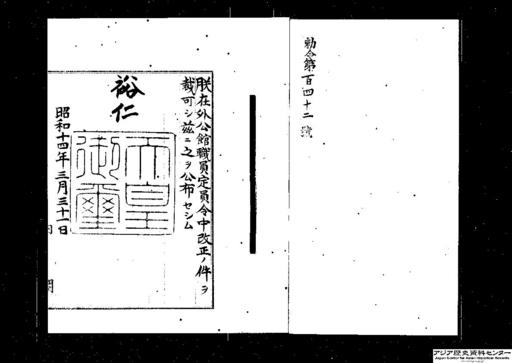 勅令第百四十二號
朕在外公館職員定員令中改正ノ件ヲ
裁可シ茲ニ之ヲ公布セシム
裕仁
天皇
御璽
昭和十四年三月三十一日
アジア歴史資料センター
Japan Center for Asian Historical Records